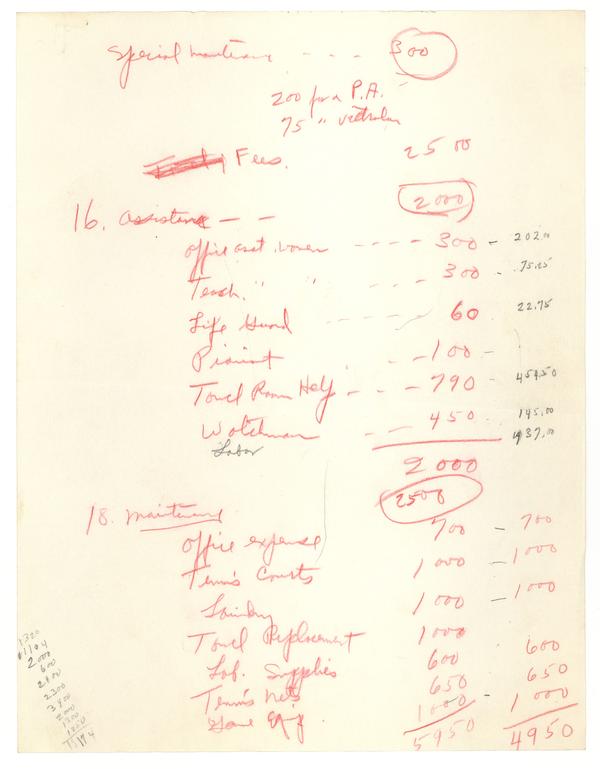 Special ---- 300
200 for a P.A.
75 " victrola
Fees. 2500
2000
16. Assistance --
office asst. ---- 300 - 202.00
Teach. " " -- 300 - 75.25
Life Guard ---- 60 22.75
Pianist -- 100 -
Towel Room Help --- 790 454.50
Watchman -- 450 145.00
Labor 437.00
2000
2500
18. maintenance
office expense 700 - 700
Tennis Courts 1000 - 1000
Laundry 1000 - 1000
Towel Replacement 1000
Lab. Supplies 600 600
Tennis nets 650 650
Game Eq. 1000 - 1000
5950 4950
1320
2000
600
2300
2000
1300